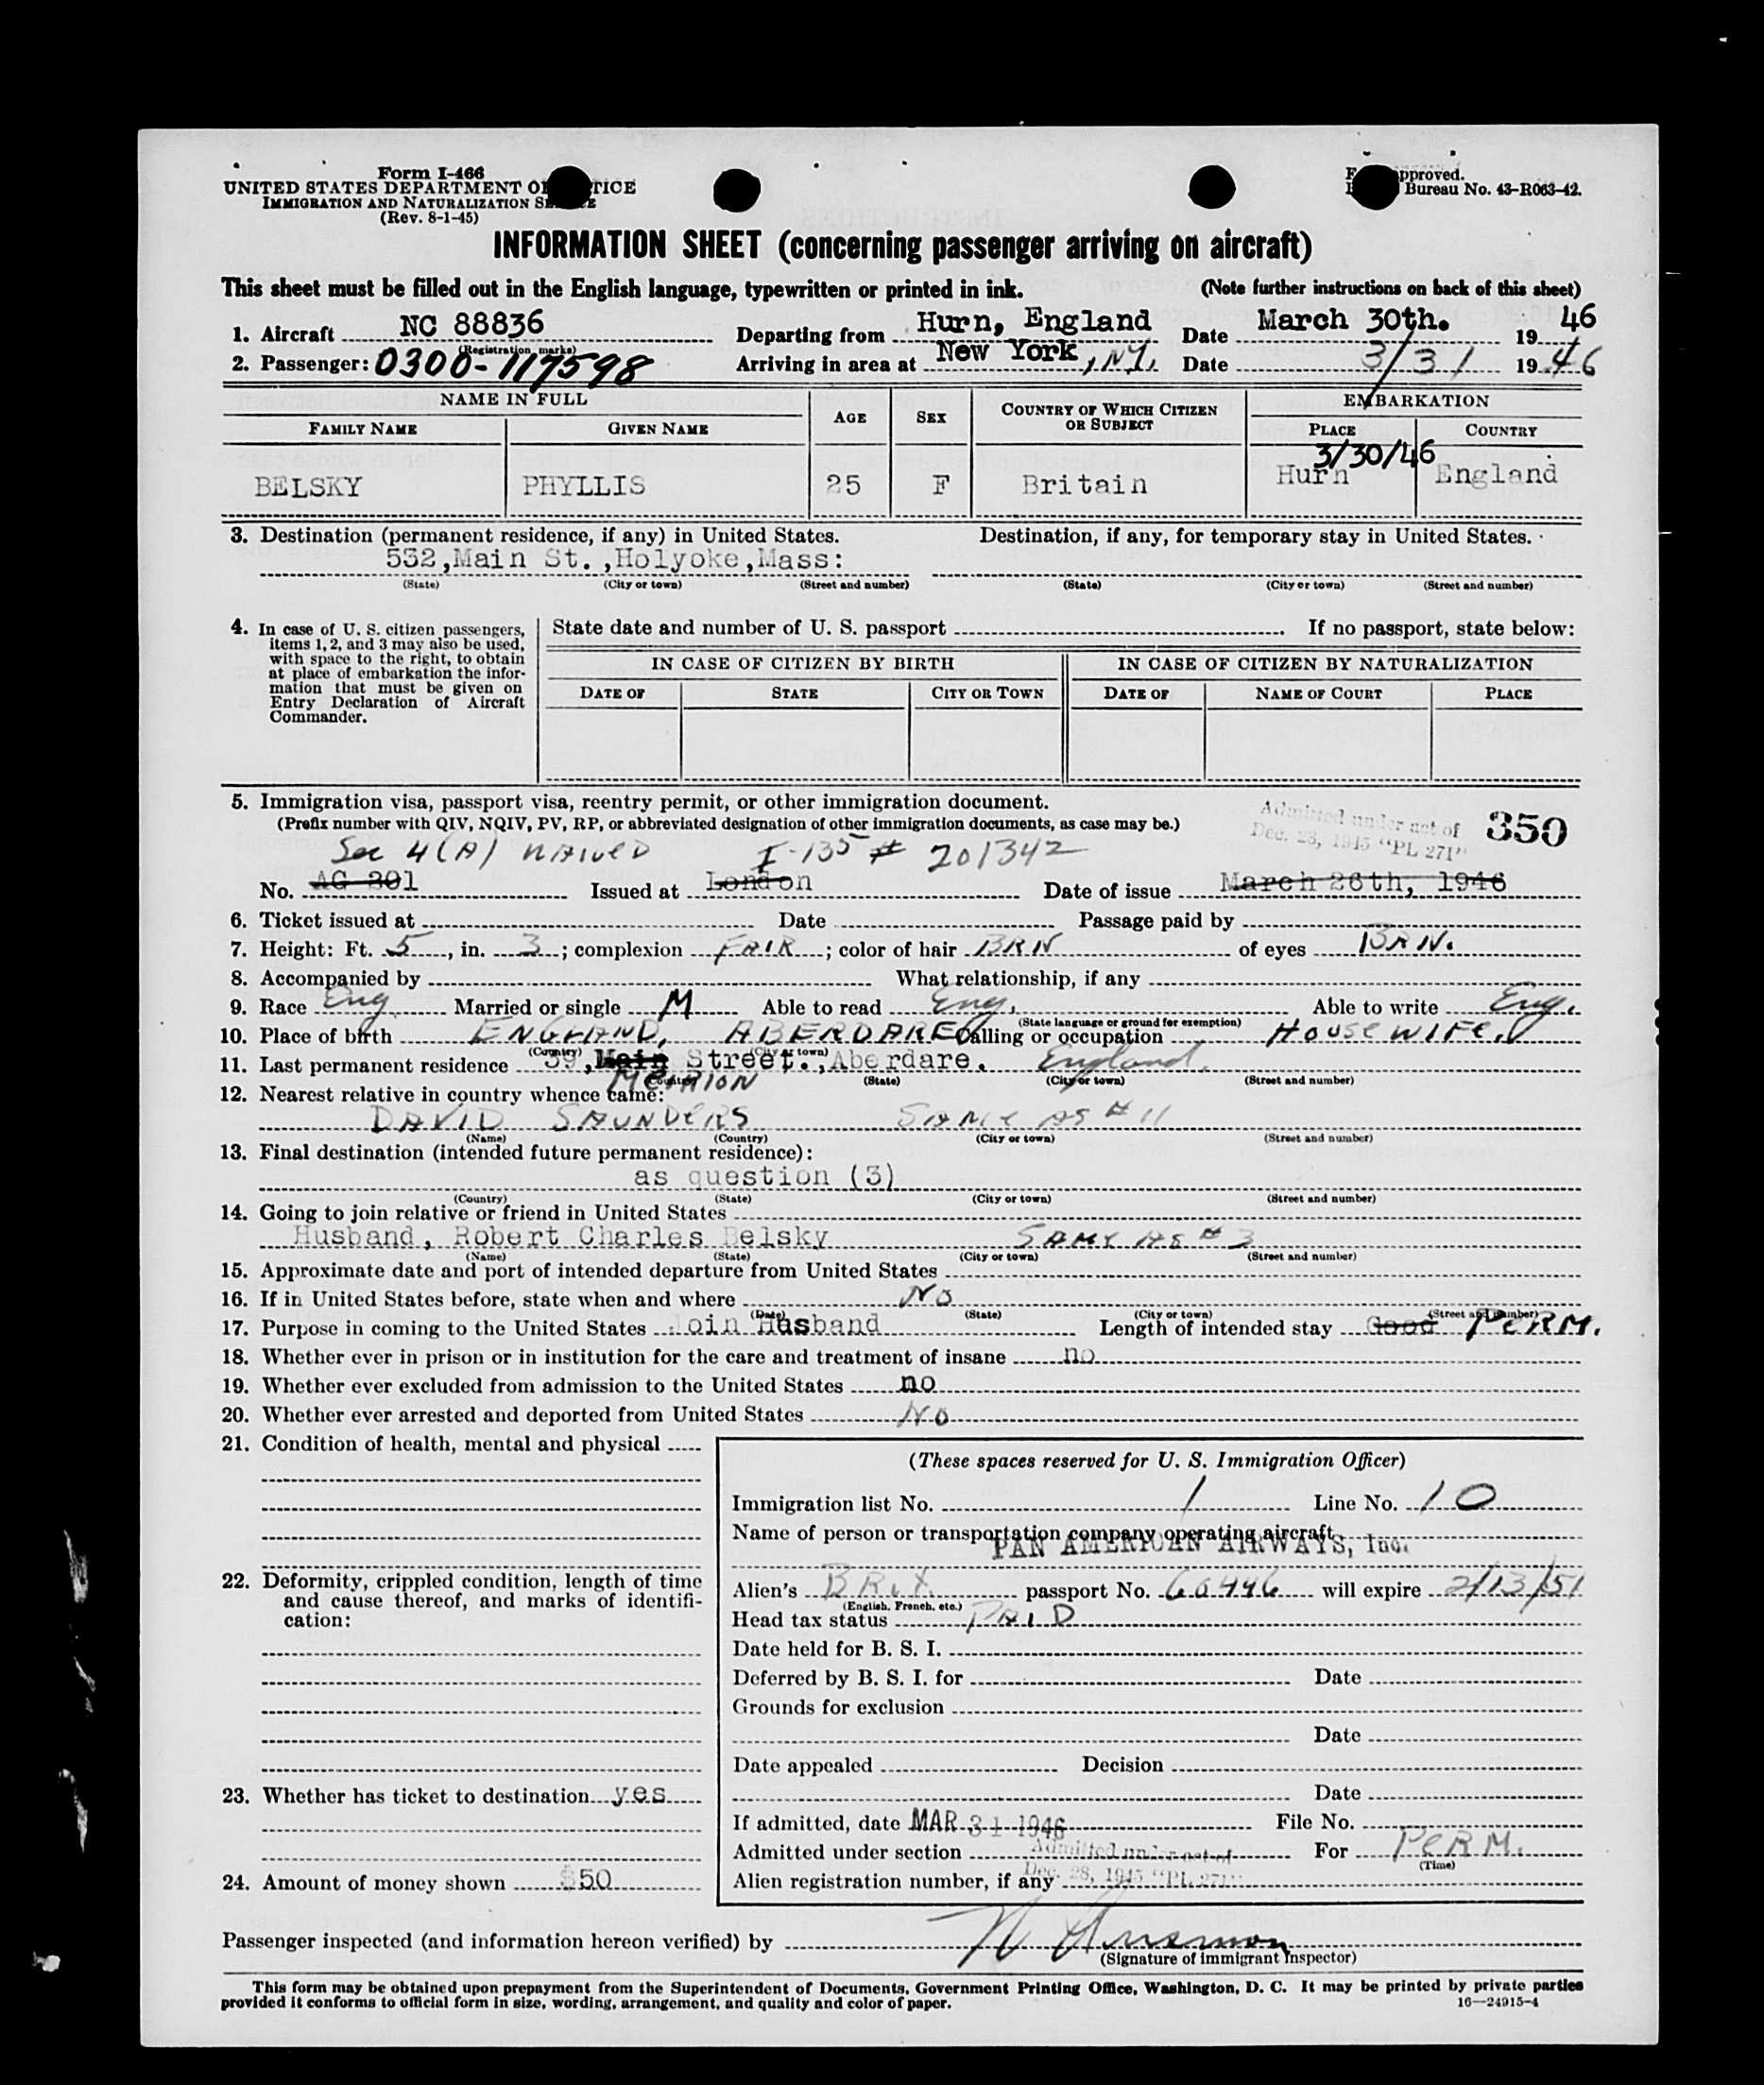 Form I-466
UNITED STATES DEPARTMENT OF JUSTICE
IMMIGRATION AND NATURALIZATION SERVICE
(Rev. 8-1-45)
Form approved.
Bureau No. 43-R063-42.
INFORMATION SHEET (concerning passenger arriving on aircraft)
This sheet must be filled out in the English language, typewritten or printed in ink. (Note further instructions on back of this sheet)
1. Aircraft NC 88836 Departing from Hurn, England Date March 30th. 19 46
(Registration marks)
2. Passenger: 0300-117598 Arriving in area at New York, N.Y. Date 3/31 19 46
NAME IN FULL AGE SEX COUNTRY OF WHICH CITIZEN OR SUBJECT EMBARKATION
FAMILY NAME GIVEN NAME PLACE COUNTRY
3/30/46
BELSKY PHYLLIS 25 F Britain Hurn England
3. Destination (permanent residence, if any) in United States. Destination, if any, for temporary stay in United States.
532,Main St.,Holyoke,Mass:
(State) (City or town) (Street and number) (State) (City or town) (Street and number)
4. In case of U. S. citizen passengers, items 1, 2, and 3 may also be used, with space to the right, to obtain at place of embarkation the information that must be given on Entry Declaration of Aircraft Commander.
State date and number of U. S. passport If no passport, state below:
IN CASE OF CITIZEN BY BIRTH IN CASE OF CITIZEN BY NATURALIZATION
DATE OF STATE CITY OR TOWN DATE OF NAME OF COURT PLACE
5. Immigration visa, passport visa, reentry permit, or other immigration document.
(Prefix number with QIV, NQIV, PV, RP, or abbreviated designation of other immigration documents, as case may be.)
Admitted under act of
Dec. 28, 1945 "PL 271"
350
Sec 4(A) WAIVED I-135 # 201342
No. AG 201 Issued at London Date of issue March 26th, 1946
6. Ticket issued at Date Passage paid by
7. Height: Ft. 5, in. 3; complexion FAIR; color of hair BRN of eyes BRN.
8. Accompanied by What relationship, if any
9. Race Eng Married or single M Able to read Eng. Able to write Eng.
(State language or ground for exemption)
10. Place of birth ENGLAND, ABERDARE Calling or occupation HOUSEWIFE.
(Country) (City or town)
11. Last permanent residence 39,Main Street.,Aberdare. England.
(Country) (State) (City or town) (Street and number)
12. Nearest relative in country whence came:
DAVID SAUNDERS SAME AS #11
(Name) (Country) (City or town) (Street and number)
13. Final destination (intended future permanent residence):
as question (3)
(Country) (State) (City or town) (Street and number)
14. Going to join relative or friend in United States
Husband, Robert Charles Belsky SAME AS #3
(Name) (State) (City or town) (Street and number)
15. Approximate date and port of intended departure from United States
16. If in United States before, state when and where No
(Date) (State) (City or town) (Street and number)
17. Purpose in coming to the United States Join Husband Length of intended stay Good PERM.
18. Whether ever in prison or in institution for the care and treatment of insane no
19. Whether ever excluded from admission to the United States no
20. Whether ever arrested and deported from United States No
21. Condition of health, mental and physical
22. Deformity, crippled condition, length of time and cause thereof, and marks of identification:
23. Whether has ticket to destination yes
24. Amount of money shown $50
(These spaces reserved for U. S. Immigration Officer)
Immigration list No. 1 Line No. 10
Name of person or transportation company operating aircraft
PAN AMERICAN AIRWAYS, Inc.
Alien's Brit. passport No. 60446 will expire 2/13/51
(English, French, etc.)
Head tax status PAID
Date held for B. S. I.
Deferred by B. S. I. for Date
Grounds for exclusion
Date
Date appealed Decision
Date
If admitted, date MAR 31 1946 File No.
Admitted under section Admitted under act of For PERM.
(Time)
Alien registration number, if any Dec. 28, 1945 "PL 271"
Passenger inspected (and information hereon verified) by
(Signature of immigrant inspector)
This form may be obtained upon prepayment from the Superintendent of Documents, Government Printing Office, Washington, D. C. It may be printed by private parties
provided it conforms to official form in size, wording, arrangement, and quality and color of paper.
16—24915-4